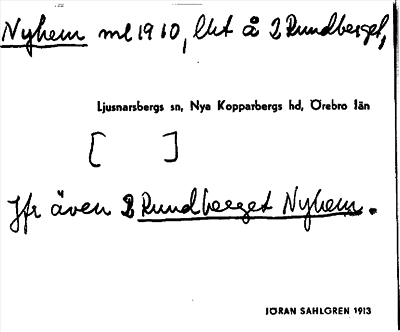 Nyhem ml 1910, lht å 2 Rundberget,
Ljusnarsbergs sn, Nya Kopparbergs hd, Örebro län
[ ]
Jfr även 2 Rundberget Nyhem.
JÖRAN SAHLGREN 1913